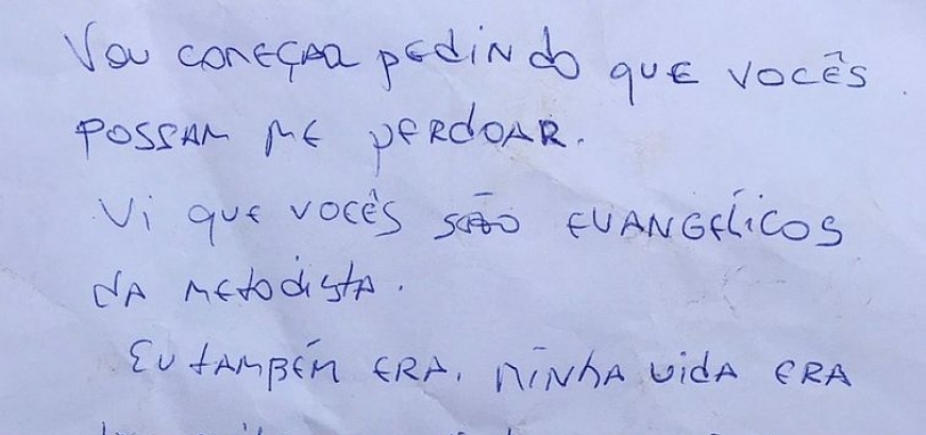 Vou começar pedindo que vocês
possam me perdoar.
Vi que vocês são evangélicos
da metodista.
Eu também era. Minha vida era